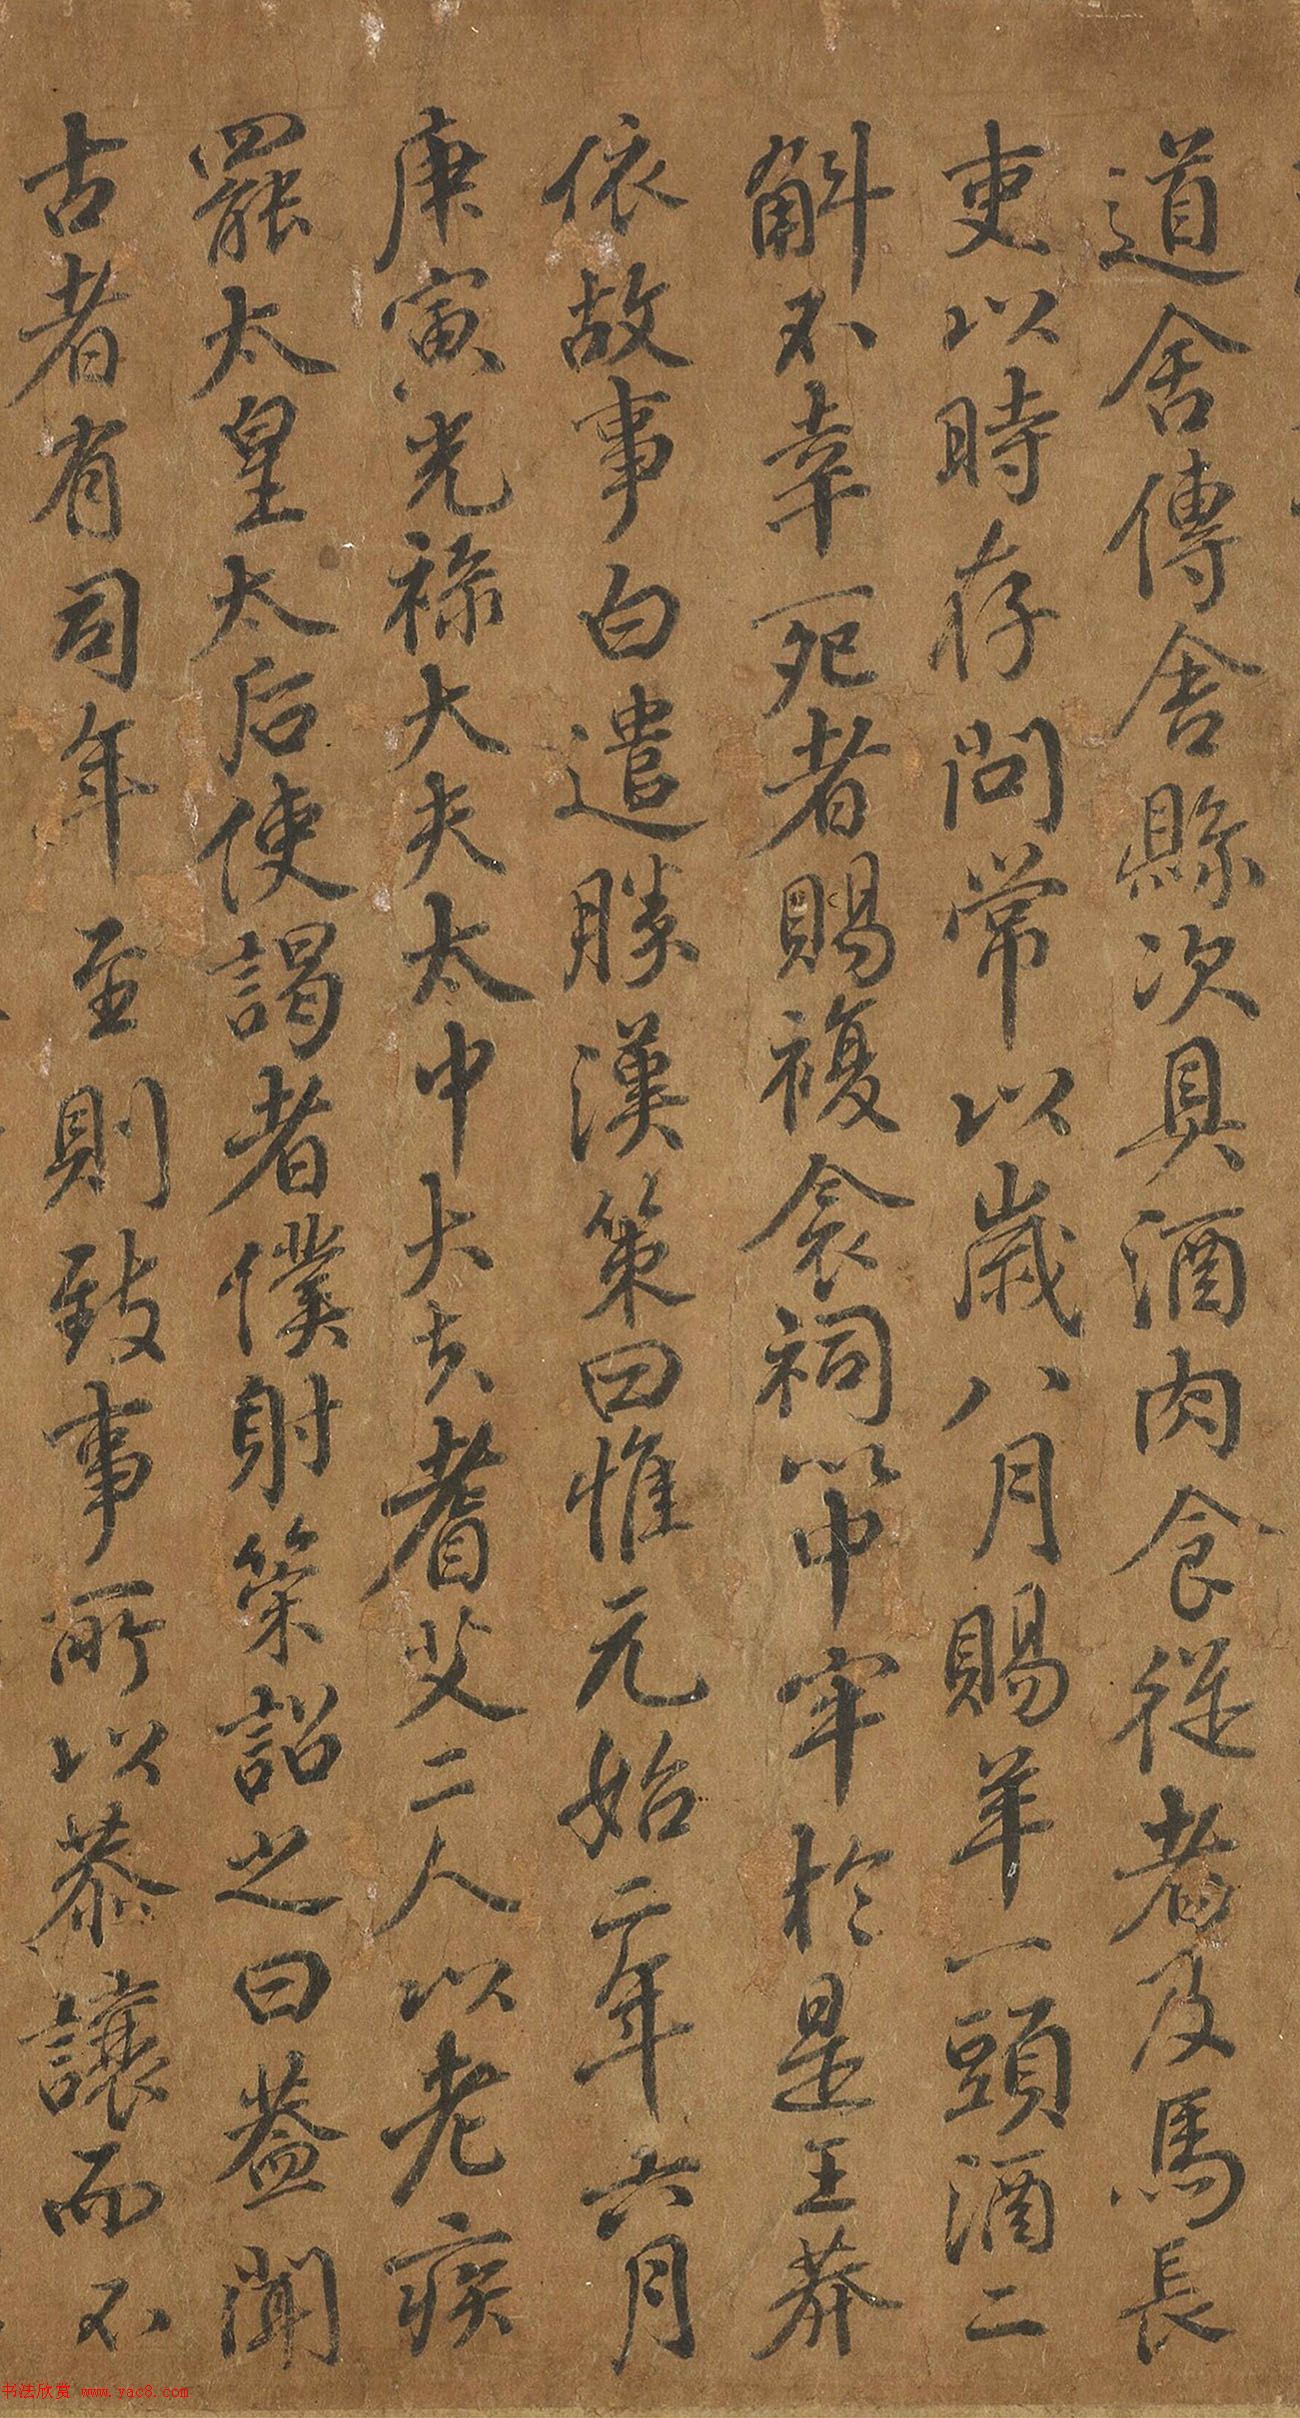 道舍傳舍縣次具酒肉食從者及馬長
吏以時存問常以歲八月賜羊一頭酒二
斛不幸死者賜複衾祠以中牢於是王莽
依故事白遣勝漢策曰惟元始二年六月
庚寅光祿大夫太中大夫耆艾二人以老疾
罷太皇太后使謁者僕射策詔之曰蓋聞
古者有司年至則致事所以恭讓而不
书法欣赏 www.yac8.com